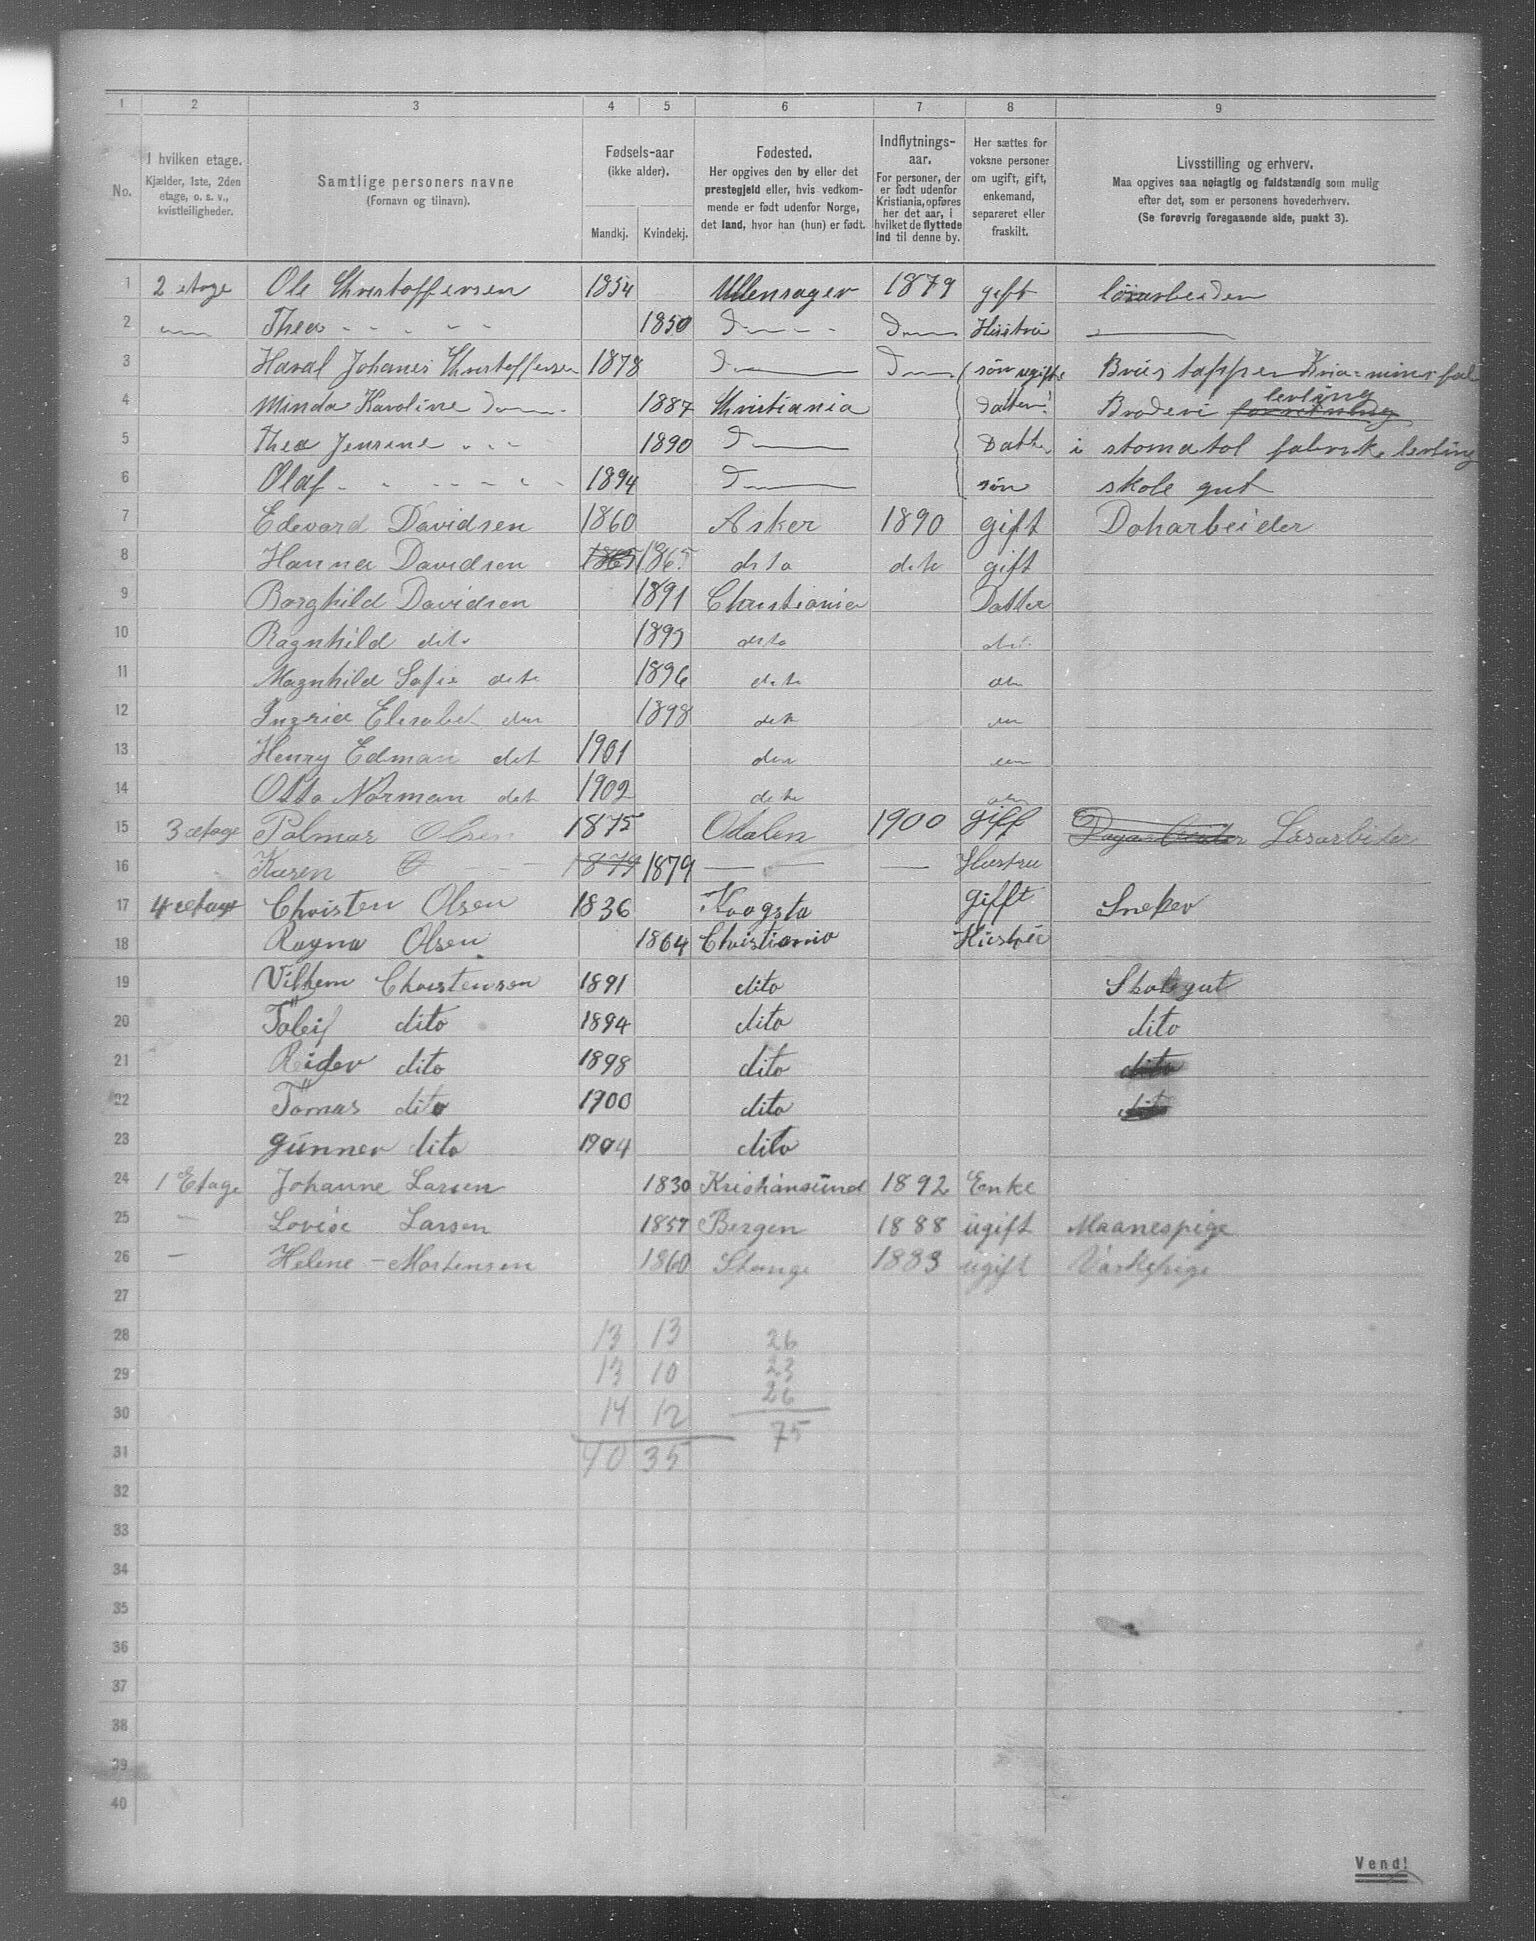 1 2 3 4 5 6 7 8 9
No.
I hvilken etage.
Kjælder, 1ste, 2den
etage, o. s. v.,
kvistleiligheder.
Samtlige personers navne
(Fornavn og tilnavn).
Fødsels-aar
(ikke alder).
Mandkj. Kvindekj.
Fødested.
Her opgives den by eller det
prestegjeld eller, hvis vedkom-
mende er født udenfor Norge,
det land, hvor han (hun) er født.
Indflytnings-
aar.
For personer, der
er født udenfor
Kristiania, opføres
her det aar, i
hvilket de flyttede
ind til denne by.
Her sættes for
voksne personer
om ugift, gift,
enkemand,
separeret eller
fraskilt.
Livsstilling og erhverv.
Maa opgives saa nøiagtig og fuldstændig som mulig
efter det, som er personens hovederhverv.
(Se forøvrig foregaaende side, punkt 3).
1 2 etage Ole Christoffersen 1854 Ullensager 1879 gift lösarbeiden
2 Thea 1850 D D Hüstrü
3 Haral Johanes Christoffersen 1878 D D søn ugift
4 Minda Karoline D 1887 Christiania Datter Broderi levling
5 Thea Jensine 1890 D Datter i stomatol fabrik levling
6 Olaf 1894 D søn skole gut
7 Edevard Davidsen 1860 Asker 1890 gift Doharbeider
8 Hanna Davidsen 1865 1865 deto dete gift
9 Borghild Davidsen 1891 Christiania Datter
10 Ragnhild dito 1893 deto
11 Magnhild Sofie dete 1896 dete
12 Ingrid Elisabet 1898 dete
13 Henry Edman det 1901
14 Otto Norman det 1902 dete
15 3 etage Palmar Olsen 1875 Odalen 1900 gift Løsarbider
16 Karen O — 1879 1879 — — Hustru
17 4 etage Christen Olsen 1836 gifft Sneker
18 Ragna Olsen 1864 Christiania Hüstrü
19 Vilhem Christensen 1891 dito Skolegut
20 Toleif dito 1894 dito dito
21 Reider dito 1898 dito dito
22 Tomas dito 1900 dito dito
23 günner dito 1904 dito
24 1 Etage Johanne Larsen 1830 Kristiansünd 1892 Enke
25 — Lovise Larsen 1857 Bergen 1888 ugift Maanespige
26 — Helene - Mortensen 1860 Stange 1883 ugift Vaskepige
27
28 13 13 26
29 13 10 23
26
30 14 12
75
31 40 35
32
33
34
35
36
37
38
39
40
Vend!